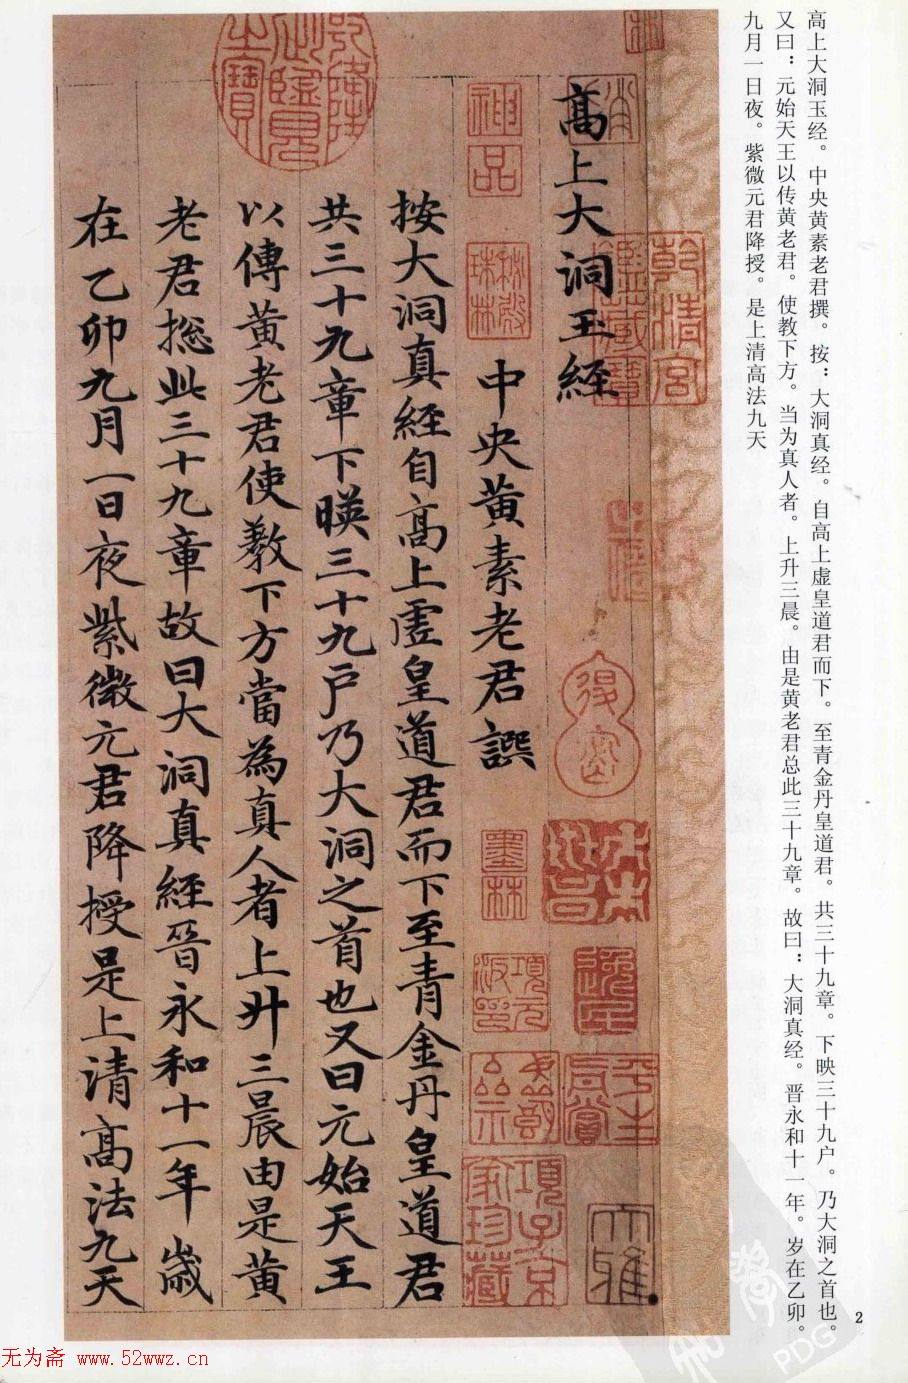 高上大洞玉经。中央黄素老君撰。按：大洞真经。自高上虚皇道君而下。至青金丹皇道君。共三十九章。下映三十九户。乃大洞之首也。
又曰：元始天王以传黄老君。使教下方。当为真人者。上升三晨。由是黄老君总此三十九章。故曰：大洞真经。晋永和十一年。岁在乙卯。
九月一日夜。紫微元君降授。是上清高法九天
高上大洞玉經
中央黄素老君譔
按大洞真經自高上虚皇道君而下至青金丹皇道君
共三十九章下暎三十九户乃大洞之首也又曰元始天王
以傳黄老君使教下方當為真人者上升三晨由是黄
老君揔此三十九章故曰大洞真經晉永和十一年歲
在乙卯九月一日夜紫微元君降授是上清高法九天
乾隆御覽之寶
神品
乾清宫鑒藏寶
秘殿珠林
墨林
項元汴印
子京
平生真賞
項子京家珍藏
大雅
2
无为斋 www.52wwz.cn
PDG